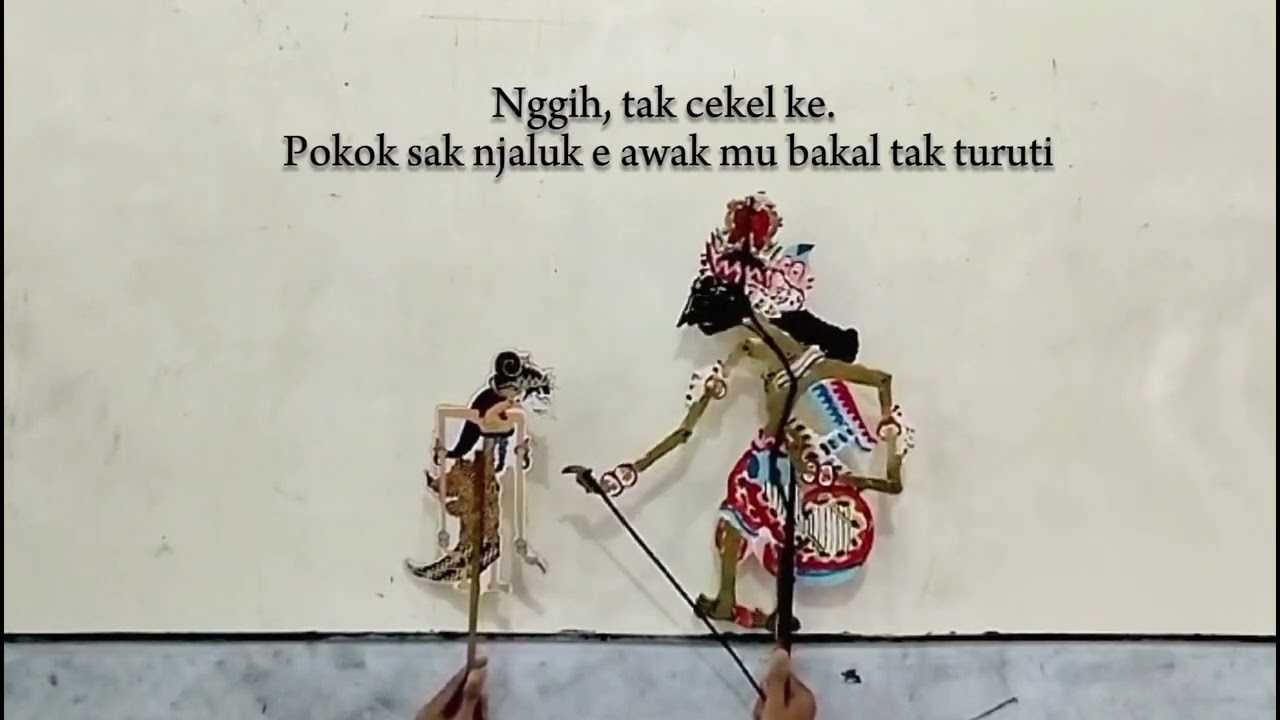 Nggih, tak cekel ke.
Pokok sak njaluk e awak mu bakal tak turuti